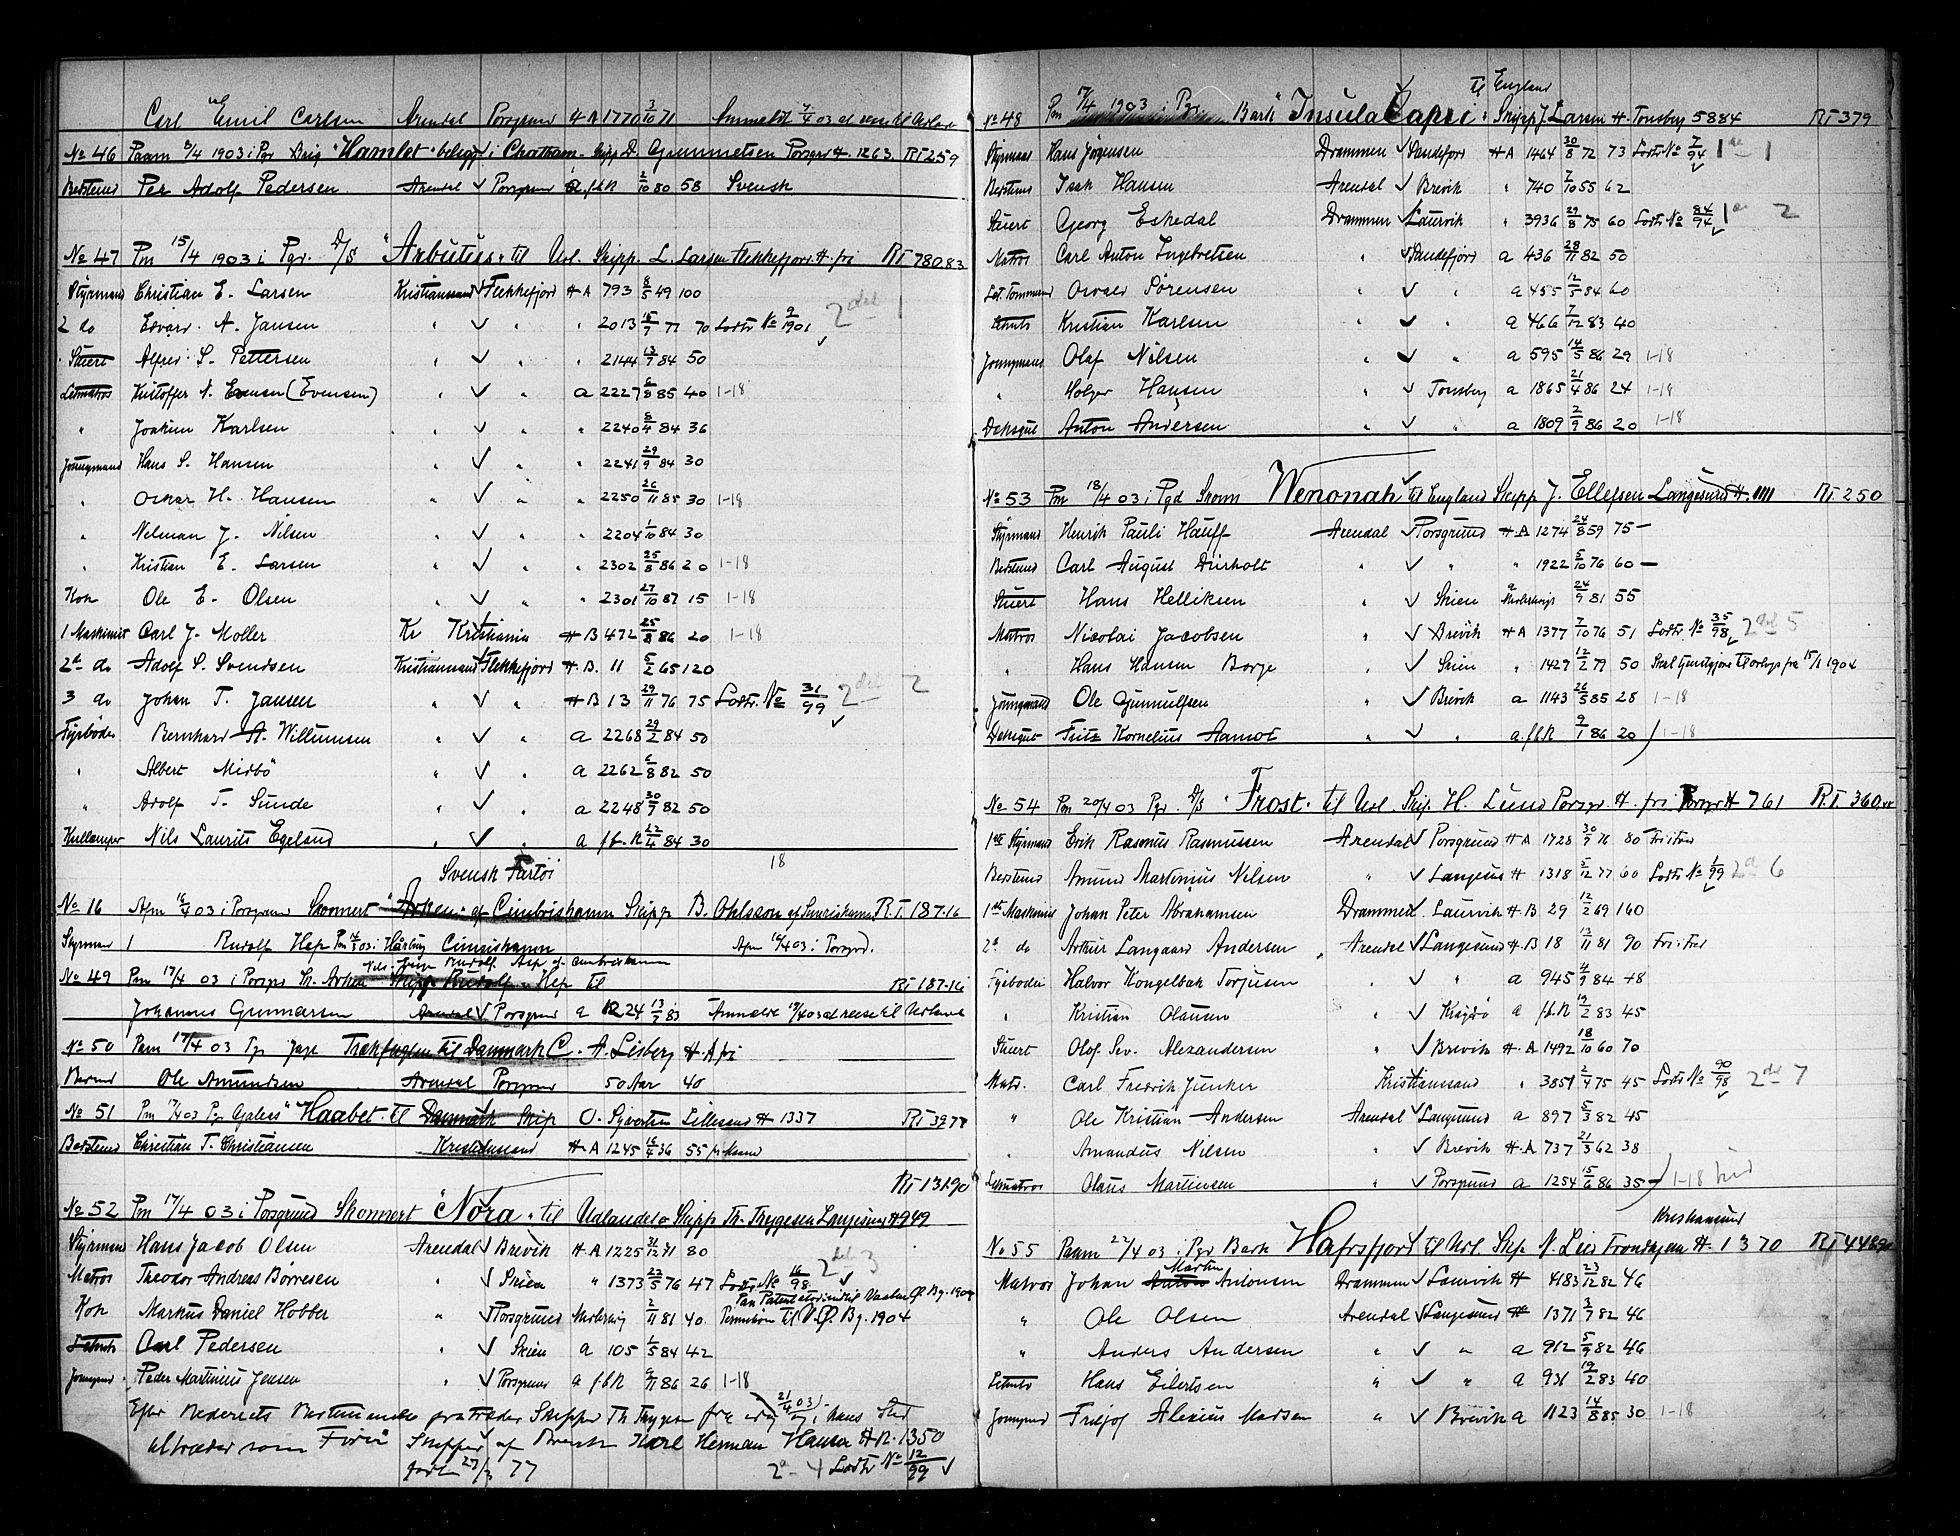 Carl Emil Carlsen Arendal Porsgrund H A 1770 3/10 71 Anmeldt 7/4 03 at
No 46 Paam 3/4 1903 i Pgr Brig "Hamlet" i Chatham Skipp D. Gunnuetsen Porsgr H. 1263. RT 259
Bedstmd Per Adolf Pedersen Arendal Porsgrund f.k 2/10 80 58 Svensk
No 47 Pm 15/4 1903 i Pgr. D/S "Arbutus" til Udl. Skipp. L. Larsen Flekkefjord H. fri RT 780.83
Styrmand Christian E. Larsen Kristianssand Flekkefjord H A 793 8/5 49 100
2 do Edvard A. Jansen " " " 2013 15/7 77 70 Lodts No 2/1901 2 del 1
Stuert Alfred S. Pettersen " " " 2144 13/7 84 50
Letmatros Kristoffer N. Evensen (Evensen) " " a 2227 6/8 85 40 1-18
" Joakim Karlsen " " " 2240 8/4 84 36
Joungmand Hans S. Hansen " " " 2241 29/9 84 30
" Oskar H. Hansen " " " 2250 26/11 85 30 1-18
" Nelman J. Nilsen " " " 2204 1/10 84 30
" Kristian E. Larsen " " " 2302 25/8 86 20 1-18
Kok Ole E. Olsen " " " 2301 27/10 87 15 1-18
1 Maskinist Carl J. Moller Kr Kristiania H B 472 25/8 86 20 1-18
2d do Adolf S. Svendsen Kristianssand Flekkefjord H. B. 11 5/2 65 120
3 do Johan T. Jansen " " H B 13 29/11 76 75 Lodts. No 31/99 2 del 2
Fyrbøder Bernhard A. Willumsen " " a 2268 29/2 84 50
" Albert Midbö " a 2262 6/8 82 50
" Adolf T. Sunde " a 2248 30/9 82 50
Kullemper Nils Laurits Egeland " " a f.f.R 22/4 84 30
Svensk Fartöi 18
No 16 Afm 16/4 03 i Porsgrund Skonnert "Arken" af Cimbrishamn Skipp B. Ohlsson af RT. 187.16
Styrmand 1 Rudolf Hep Pm i Harburg Cimrishamn Afm 16/4 03 i Porsgrd.
Nils Rudolf Asp af Cimbrishamn
No 49 Pm 17/4 03 i Porsgr Sk. Arken Skipp Rudolf Hep til RT 187.16
Johannes Gunnarsen Arendal Porsgrund a 1224 13/7 83 Anmeldt 17/4 03 at reise til Udland
No 50 Paam 17/4 03 Pgr Jagt Trækfuglen til Danmark C. A. Lisberg H. A fri
Ole Amundsen Arendal Porsgrund 50 Aar 40
No 51 Pm 17/4 03 Pgr Galeas "Haabet" til Danmark Skip O. Syvertsen Lillesand H 1337 RT 39.77
Bedstmd Christian T. Christiansen Kristianssand H A 1245 16/4 36 55 pr Maaned
RT 131.90
No 52 Pm 17/4 03 i Porsgrund Skonnert "Nora" til Udlandet Skipp Th. Thygesen Langesund H 949
Styrmand Hans Jacob Olsen Arendal Brevik H A 1225 31/12 71 80 2 del 3
Matros Theodor Andreas Børresen " Skien " 1373 22/5 76 47 Lodts No 16/98
Kok Markus Daniel Hobber " Porsgrund 2/11 81 40 Permission til Bg. 1904
Letmts Carl Pedersen " Skien a 105 1/5 84 42
Joungmd Peder Martinius Jensen " Porsgrund a f.f.R 9/11 86 26 1-18
Efter Rederiets Bestemmelse fratræder Skipper Th Thygesen fra idag 21/4 03 i hans sted
tiltræder som Fører Skipper af Brevik Karl Herman Hansen H A. 1350
født 27/3 77 2d 4 Lodts No 12/99
til England
No 48 Pm 17/4 1903 i Pgr. Bark "Insula Capri" Skipp J. Larsen H. Tonsberg 5884 RT 379
Styrmand Hans Jørgensen Drammen Sandefjord H A 1464 30/8 72 73 Lodts No 7/94 1 1
Bedstmd Isak Hansen Arendal Brevik " 740 7/10 55 62
Stuert Georg Eskedal Drammen Laurvik " 3936 29/8 75 60 Lodts No 84/94 1 2
Matros Carl Anton Ingebretsen " Sandefjord a 436 28/11 82 50
Let. Tommmd Osvald Sørensen " " a 455 12/5 84 60
Letmts Kristian Karlsen " " a 466 7/12 83 40
Joungmand Olaf Nilsen " " a 595 14/5 86 29 1-18
" Holger Hansen " Tonsberg a 1865 21/4 86 24 1-18
Deksgut Anton Andersen " " a 1809 2/9 86 20 1-18
No 53 Pm 18/4 03 i Pgd Skonn Wenonah til England Skipp J. Ellefsen Langesund H. 1111 RT 250
Styrmand Henrik Pauli Hauff Arendal Porsgrund H A 1274 24/8 59 75
Bedstmd Carl August Dirholt " " " 1922 5/10 76 60
Stuert Hans Helliksen " Skien 24/9 81 55
Matros Nicolai Jacobsen " Brevik H A 1377 7/10 76 51 Lodts No 35/98 2 del 5
" Hans Hansen Borge " Skien " 1427 12/2 79 50 Skal tjenstgjøre til orlogs fra 15/1 1904
Joungmand Ole Gunnulfsen " Brevik a 1143 26/5 85 28 1-18
Deksgut Fritz Kornelius Aamot " " a.f.f.R 9/1 86 20 1-18
No 54 Pm 20/4 03 Pgr. D/S "Frost" til Udl. Skip. H. Lund Porsgr. H. fri Porsgr H 761 RT. 360
1ste Styrmand Erik Rasmus Rasmussen Arendal Porsgrund H A 1728 30/9 76 80
Bedstmd Amund Martinius Nilsen " Langesund H 1318 5/12 77 60 Lodts No 1/99 2d 6
1ste Maskinist Johan Peter Abrahamsen Drammen Laurvik H B 29 12/2 69 160
2d do Arthur Langaard Andersen Arendal Langesund H B 18 13/11 81 90
Fyrbøder Halvor Kongelbak Torjusen " " a 945 4/9 84 48
" Kristian Olausen " Kragerø a f.f.R 19/2 83 45
Stuert Olof Sev. Alexandersen " Brevik H. A 1492 18/10 60 70
Matr. Carl Fredrik Junker Kristianssand " 3851 2/4 75 45 Lodts No 90/98 2 del 7
" Ole Kristian Andersen Arendal Langesund a 897 5/3 82 45
" Amandus Nilsen " Brevik H. A 737 21/3 62 38
Letmatros Olaus Martinsen " Porsgrund a 1254 15/6 86 35 1-18
Kristiansund
No 55 Paam 22/4 03 i Pgr Bark Hafrsfjord til Udl. Skip. N. Lies Trondhjem H. 1370 RT 446
Matros Johan Anton Martin Antonsen Drammen Laurvik H 4183 23/12 82 46
" Ole Olsen Arendal Langesund H 1371 3/7 82 46
" Anders Andersen " " a 912 5/9 82 46
Letmts Hans Eilertsen " " a 931 19/2 83 40
Joungmd Fritjof Alexius Madsen " Brevik a 1123 14/8 85 30 1-18